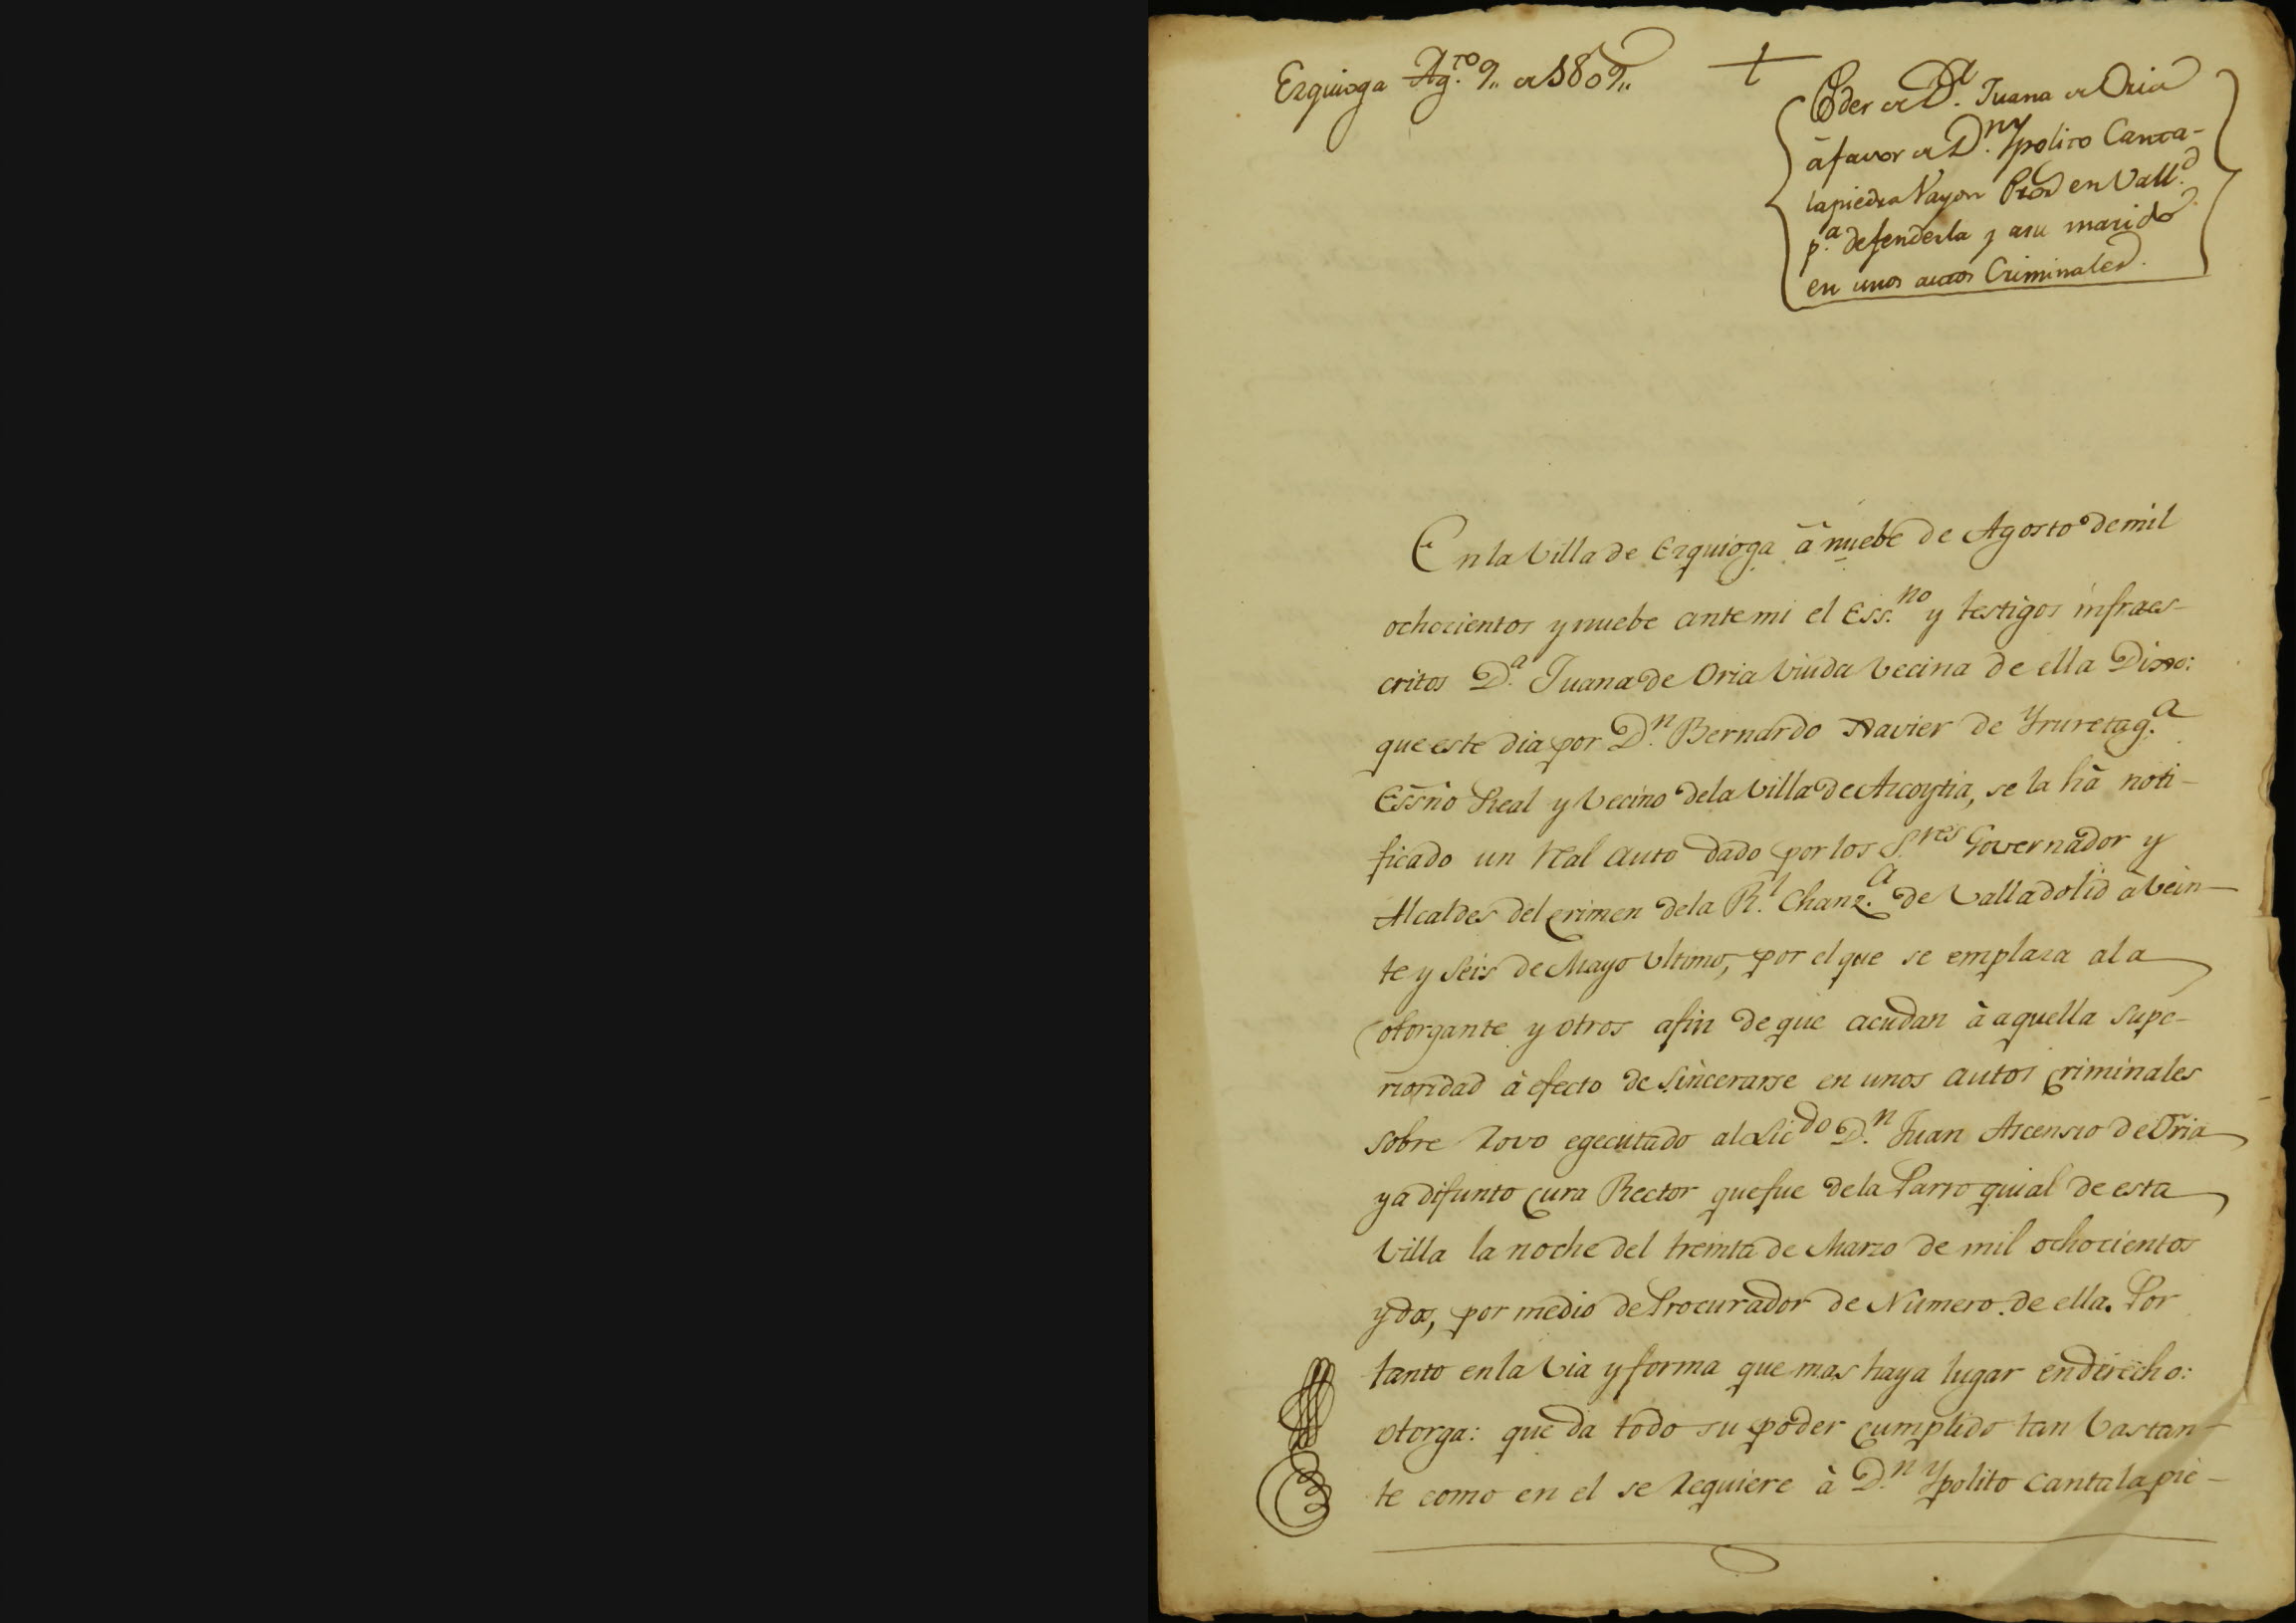 Ezquioga Ag.to 9,, de 1809,,
Poder de D.a Juana de Oria
à favor de D.n Ypolito Canta-
lapiedra Nayon Pror en Vall.d
p.a defenderla y a su marido
en unos autos Criminales.
En la Villa de Ezquioga à nuebe de Agosto de mil
ochocientos y nuebe ante mi el Ess.no y testigos infraes-
critos D.a Juana de Oria Viuda Vecina de ella Dixo:
que este dia por D.n Bernardo Xavier de Yruretag.a
Essño Real y Vecino de la Villa de Azcoytia, se la hà noti-
ficado un Real auto dado por los S.res Governador y
Alcaldes del crimen de la R.l Chanz.a de Valladolid à vein-
te y seis de Mayo ultimo, por el que se emplaza a la
otorgante y otros afin de que acudan à aquella supe-
rioridad à efecto de sincerarse en unos autos criminales
sobre Rovo egecutado al Licdo D.n Juan Ascensio de Oria
ya difunto cura Rector que fue de la Parroquial de esta
Villa la noche del treinta de Marzo de mil ochocientos
y dos, por medio de Procurador de Numero de ella. Por
tanto en la via y forma que mas haya lugar en derecho:
otorga: que da todo su poder cumplido tan bastan-
te como en el se Requiere à D.n Ypolito Cantalapie-